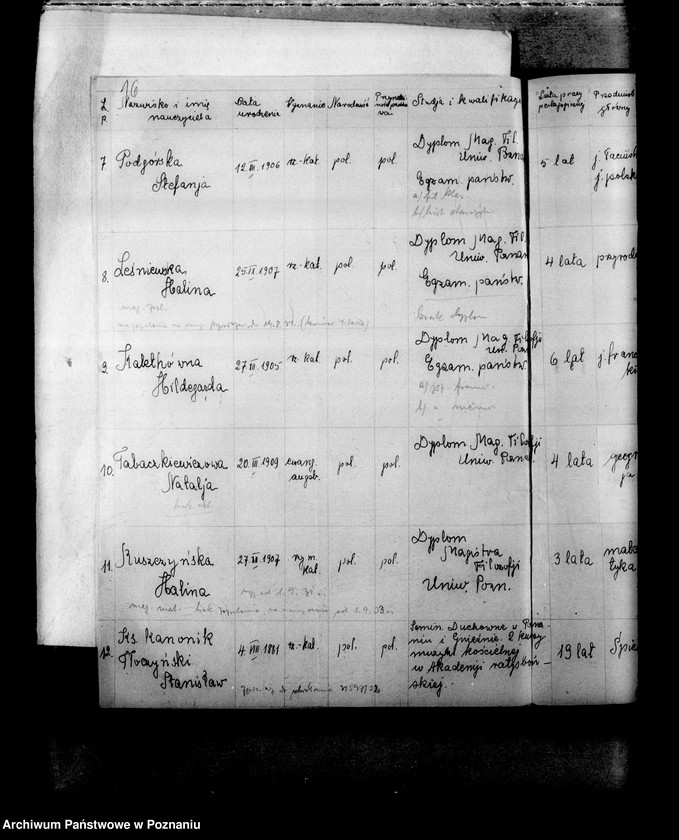 16
L. p. Nazwisko i imię nauczyciela Data urodzenia Wyznanie Narodowość Przynal. państwowa Studja i kwalifikacje Lata pracy pedagogicznej Przedmiot główny
7. Podgórska Stefanja 12.III.1906 rz.-kat. pol. pol. Dyplom Mag. Fil. Uniw. Pozna Egzam. państw. 5 lat j. łacińsk j. polsk
8. Leśniewska Halina 25.II.1907 rz.-kat. pol. pol. Dyplom Mag. Fil. Uniw. Poznań Egzam. państw. 4 lata przyrod
brak dyplom
9. Hildegarda 27.III.1905 rz.-kat. pol. pol. Dyplom Mag. Filozofji Un. Pozn Egzam. państw. 6 lat j. franc
10. Tabaczkiewiczowa Natalja 20.III.1909 ewang. augsb. pol. pol. Dyplom Mag. Filozofji Uniw. Pozna. 4 lata geogr
11. Ruszczyńska Halina 27.II.1907 rzym. kat. pol. pol. Dyplom Magistra Filozofji Uniw. Pozn. 3 lata mate tyka
12. Ks. kanonik Tłoczyński Stanisław 4.VIII.1881 rz.-kat. pol. pol. Semin. Duchowne w Poznaniu i Gnieźnie. 2 kursy muzyki kościelnej w Akademji ratysbońskiej. 19 lat Śpie
Archiwum Państwowe w Poznaniu